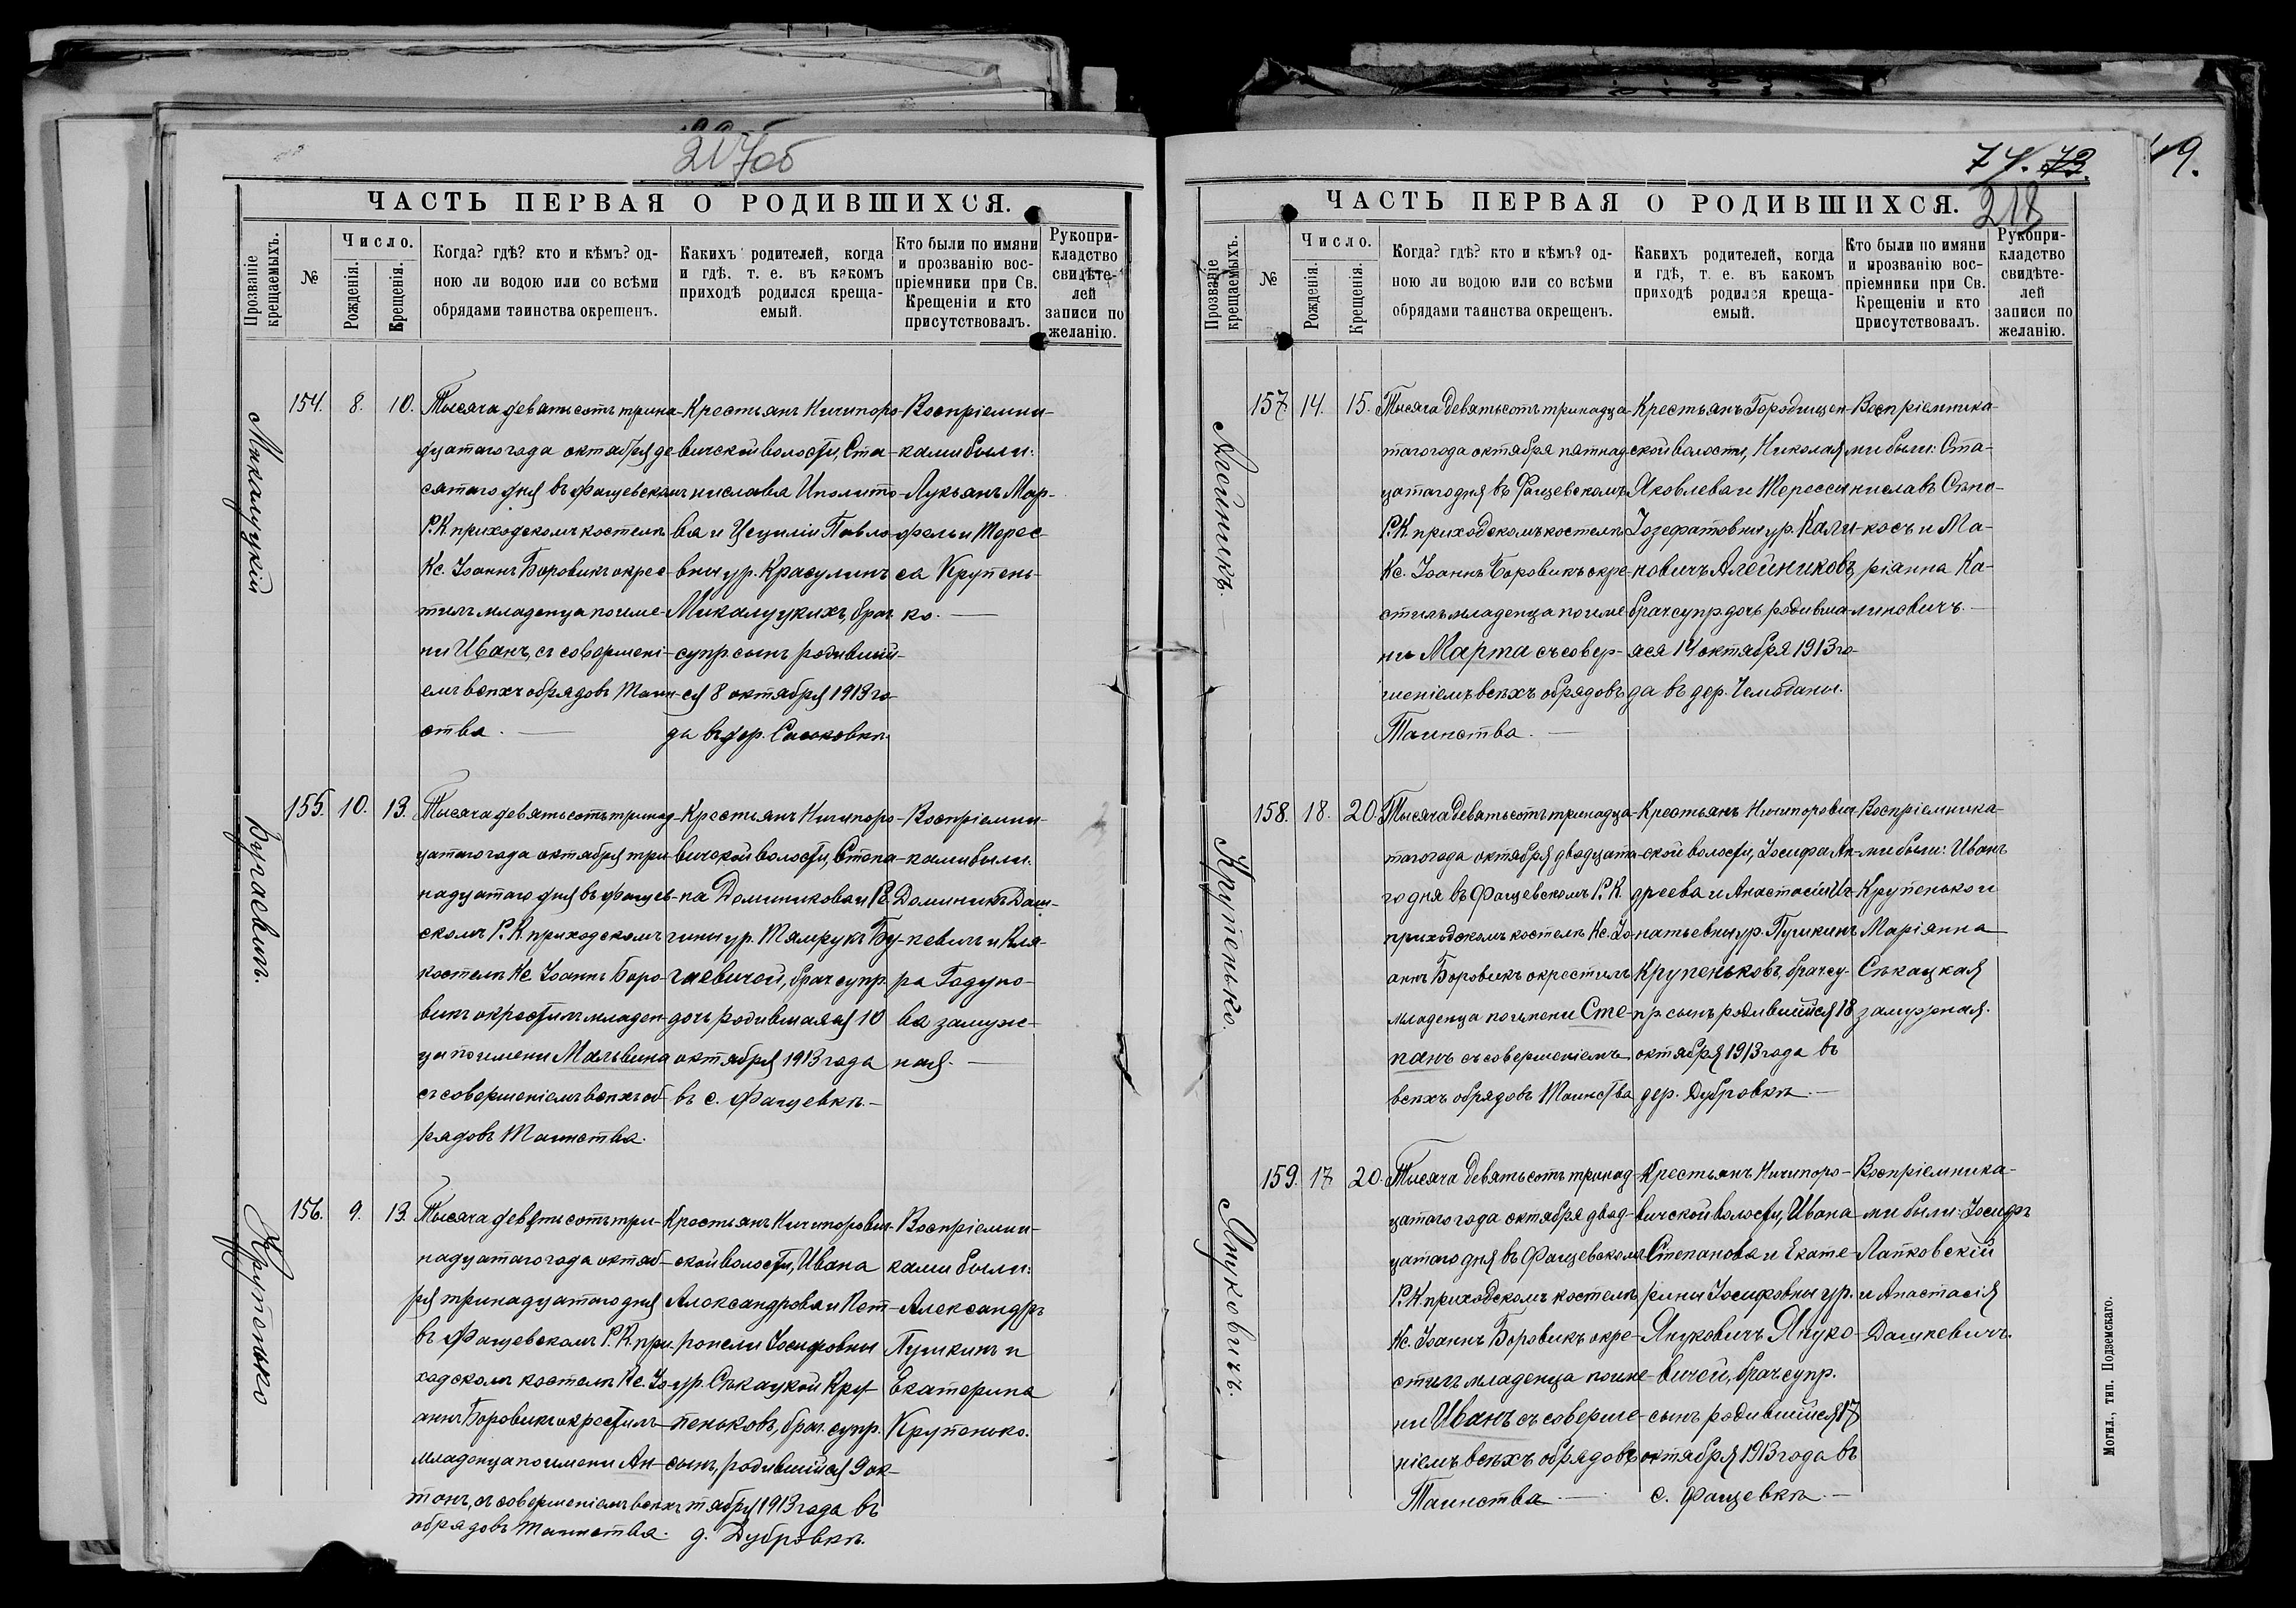 217об
ЧАСТЬ ПЕРВАЯ О РОДИВШИХСЯ.
Прозваніе крещаемыхъ.
№
Число.
Рожденія.
Крещенія.
Когда? гдѣ? кто и кѣмъ? од-
ною ли водою или со всѣми
обрядами таинства окрещенъ.
Какихъ родителей, когда
и гдѣ, т. е. въ какомъ
приходѣ родился креща-
емый.
Кто были по имяни
и прозванію вос-
пріемники при Св.
Крещеніи и кто
присутствовалъ.
Рукопри-
кладство
свидѣте-
лей
записи по
желанію.
Микалуцкій
154. 8. 10.
Тысяча девятьсотъ трина-
дцатаго года октября де-
сятаго дня въ Фащевскомъ
Р.К. приходскомъ костелѣ
Кс. Іоаннъ Боровикъ окрес-
тилъ младенца по име-
ни Иванъ, съ совершені-
емъ всѣхъ обрядовъ Таин-
ства.
Крестьянъ Ничипоро-
вичской волости, Ста-
нислава Иполито-
ва и Цециліи Павло-
вны ур. Красулинъ
Микалуцкихъ, брач.
супр. сынъ родивший-
ся 8 октября 1913 го-
да въ дер. Сасковкѣ
Воспріемни-
ками были:
Лукьянъ Мар-
фель и Терес-
са Крупень-
ко.
Бугаевичъ.
155. 10. 13.
Тысяча девятьсотъ тринад-
цатаго года октября три-
надцатаго дня въ Фащев-
скомъ Р.К. приходскомъ
костелѣ Кс. Іоаннъ Боро-
викъ окрестилъ младен-
ца по имени Мальвина
съ совершеніемъ всѣхъ об-
рядовъ Таинства.
Крестьянъ Ничипоро-
вичской волости, Степа-
на Доминикова и Ре-
гины ур. Тямрукъ Бу-
гаевичей, брач. супр.
дочь родившаяся 10
октября 1913 года
въ с. Фащевкѣ.
Воспріемни-
ками были:
Доминикъ Даш-
кевичъ и Кла-
ра Годуно-
ва замуж-
няя.
Крупенько
156. 9. 13.
Тысяча девятьсотъ три-
надцатаго года октяб-
ря тринадцатаго дня
въ Фащевскомъ Р.К. при-
ходскомъ костелѣ Кс. Іо-
аннъ Боровикъ окрестилъ
младенца по имени Ан-
тонъ, съ совершеніемъ всѣхъ
обрядовъ Таинства.
Крестьянъ Ничипорович-
ской волости, Ивана
Александрова и Пет-
ронели Іосифовны
ур. Сѣкацкой Кру-
пеньковъ, брач. супр.
сынъ, родившийся 9 ок-
тября 1913 года въ
д. Дубровкѣ.
Воспріемни-
ками были:
Александръ
Пушкинъ и
Екатерина
Крупенько.
74. 73.
49.
218
ЧАСТЬ ПЕРВАЯ О РОДИВШИХСЯ.
Прозваніе крещаемыхъ.
№
Число.
Рожденія.
Крещенія.
Когда? гдѣ? кто и кѣмъ? од-
ною ли водою или со всѣми
обрядами таинства окрещенъ.
Какихъ родителей, когда
и гдѣ, т. е. въ какомъ
приходѣ родился креща-
емый.
Кто были по имяни
и прозванію вос-
пріемники при Св.
Крещеніи и кто
присутствовалъ.
Рукопри-
кладство
свидѣте-
лей
записи по
желанію.
Алейникъ.
157. 14. 15.
Тысяча девятьсотъ тринадца-
таго года октября пятнад-
цатаго дня въ Фащевскомъ
Р.К. приходскомъ костелѣ
Кс. Іоаннъ Боровикъ окре-
стилъ младенца по име-
ни Марта съ совер-
шеніемъ всѣхъ обрядовъ
Таинства.
Крестьянъ Городищен-
ской волости, Николая
Яковлева и Терессы
Іозефатовны ур. Кали-
новичъ Алейниковъ,
брач. супр. дочь родивша-
яся 14 октября 1913 го-
да въ дер. Чемоданы.
Воспріемника-
ми были: Ста-
ниславъ Сѣно-
косъ и Ма-
ріанна Ка-
линовичъ.
Крупенько.
158. 18. 20.
Тысяча девятьсотъ тринадца-
таго года октября двадцата-
го дня въ Фащевскомъ Р.К.
приходскомъ костелѣ Кс. Іо-
аннъ Боровикъ окрестилъ
младенца по имени Сте-
панъ съ совершеніемъ
всѣхъ обрядовъ Таинства
Крестьянъ Ничипорович-
ской волости, Іосифа Ан-
дреева и Анастасіи Иг-
натьевны ур. Пушкинъ
Крупеньковъ, брач. су-
пр. сынъ родившийся 18
октября 1913 года въ
дер. Дубровкѣ.
Воспріемника-
ми были: Иванъ
Крупенько и
Маріянна
Сѣкацкая
замужняя.
Януковичъ.
159. 17. 20.
Тысяча девятьсотъ тринад-
цатаго года октября двад-
цатаго дня въ Фащевскомъ
Р.К. приходскомъ костелѣ
Кс. Іоаннъ Боровикъ окре-
стилъ младенца по име-
ни Иванъ съ соверше-
ніемъ всѣхъ обрядовъ
Таинства
Крестьянъ Ничипоро-
вичской волости, Ивана
Степанова и Екате-
рины Іосифовны ур.
Януковичъ Януко-
вичей, брач. супр.
сынъ родившийся 17
октября 1913 года въ
с. Фащевкѣ.
Воспріемника-
ми были: Іосифъ
Лапковскій
и Анастасія
Дашкевичъ.
Могил., тип. Подземскаго.